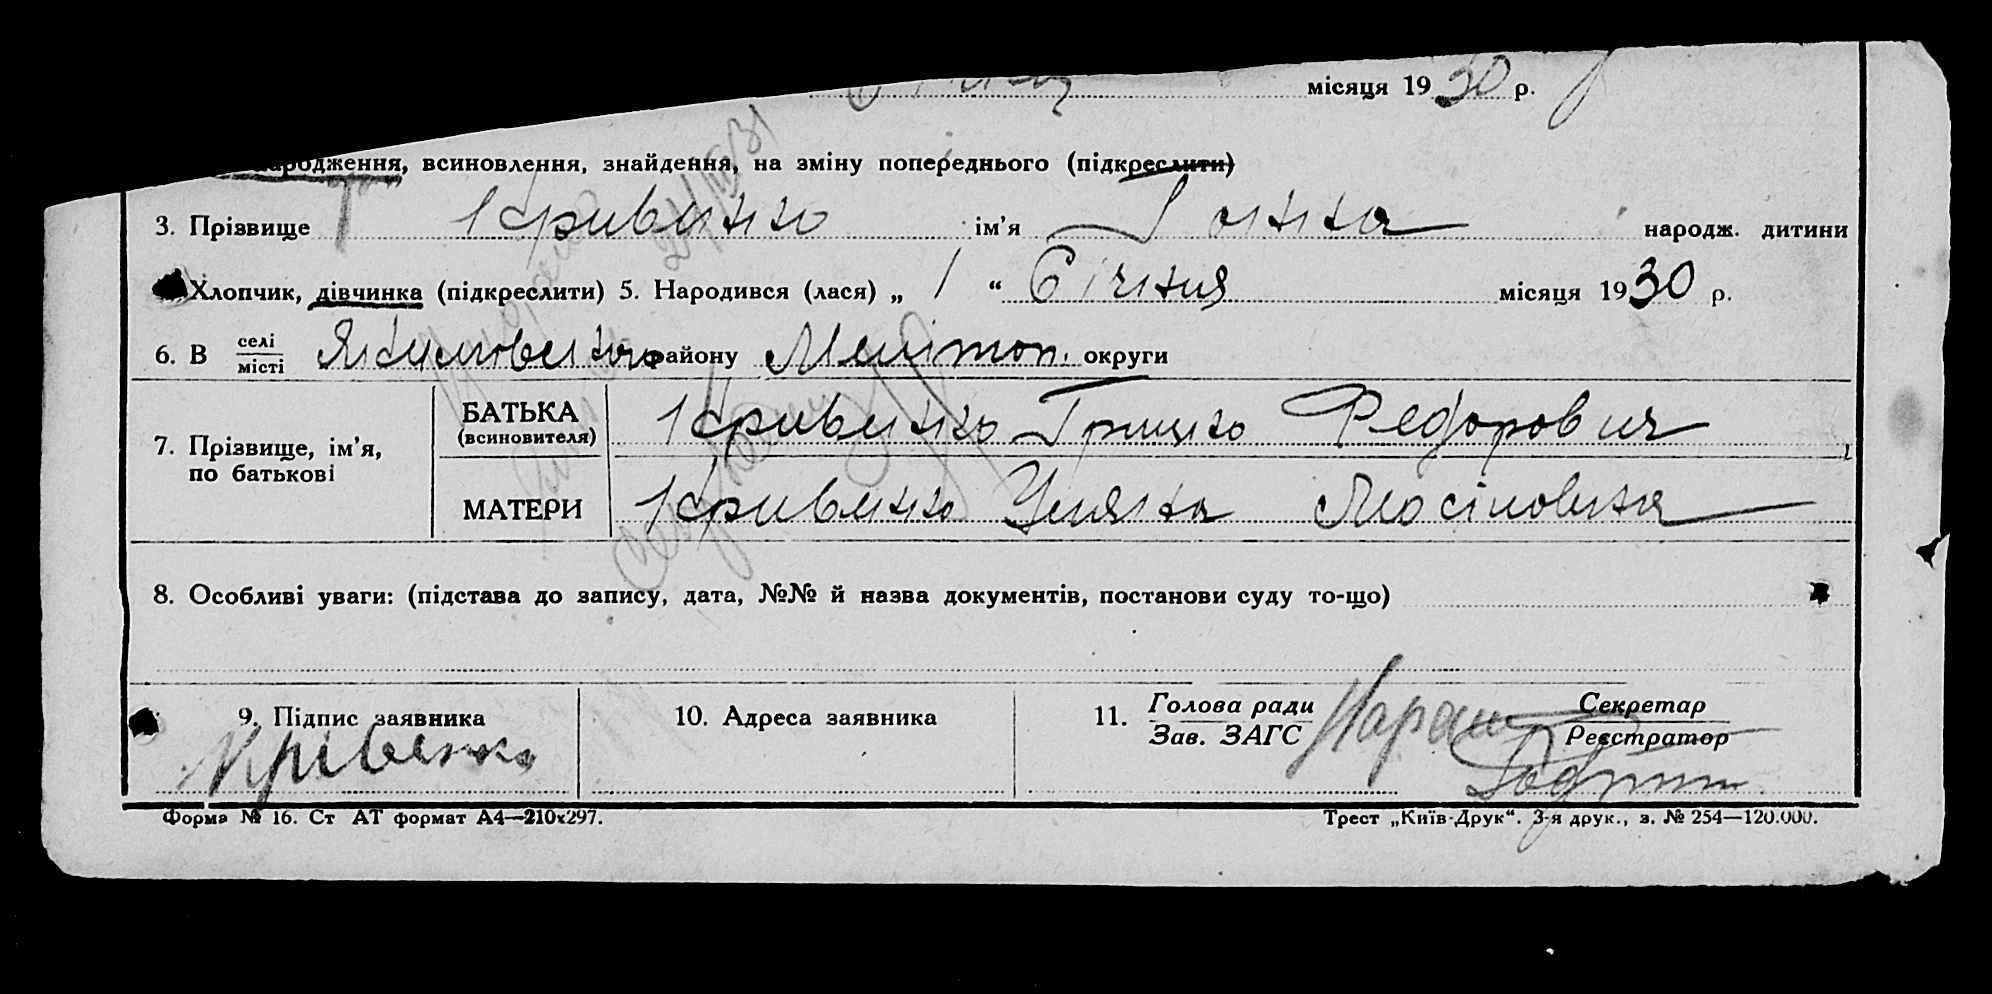 місяця 1930 р.
народження, всиновлення, знайдення, на зміну попереднього (підкреслити)
3. Прізвище Кривенко ім'я Ганна народж. дитини
Хлопчик, дівчинка (підкреслити) 5. Народився (лася) „ 1 “ Січня місяця 1930 р.
6. В селі місті району Мелітоп. округи
7. Прізвище, ім'я, по батькові
БАТЬКА (всиновителя) Кривенко Грицько Федорович
МАТЕРИ Кривенко Уляна
8. Особливі уваги: (підстава до запису, дата, №№ й назва документів, постанови суду то-що)
9. Підпис заявника 10. Адреса заявника 11. Голова ради Зав. ЗАГС Секретар Реєстратор
Крівенко
Форма № 16. Ст АТ формат А4—210х297. Трест „Київ-Друк“. 3-я друк., з. № 254—120.000.